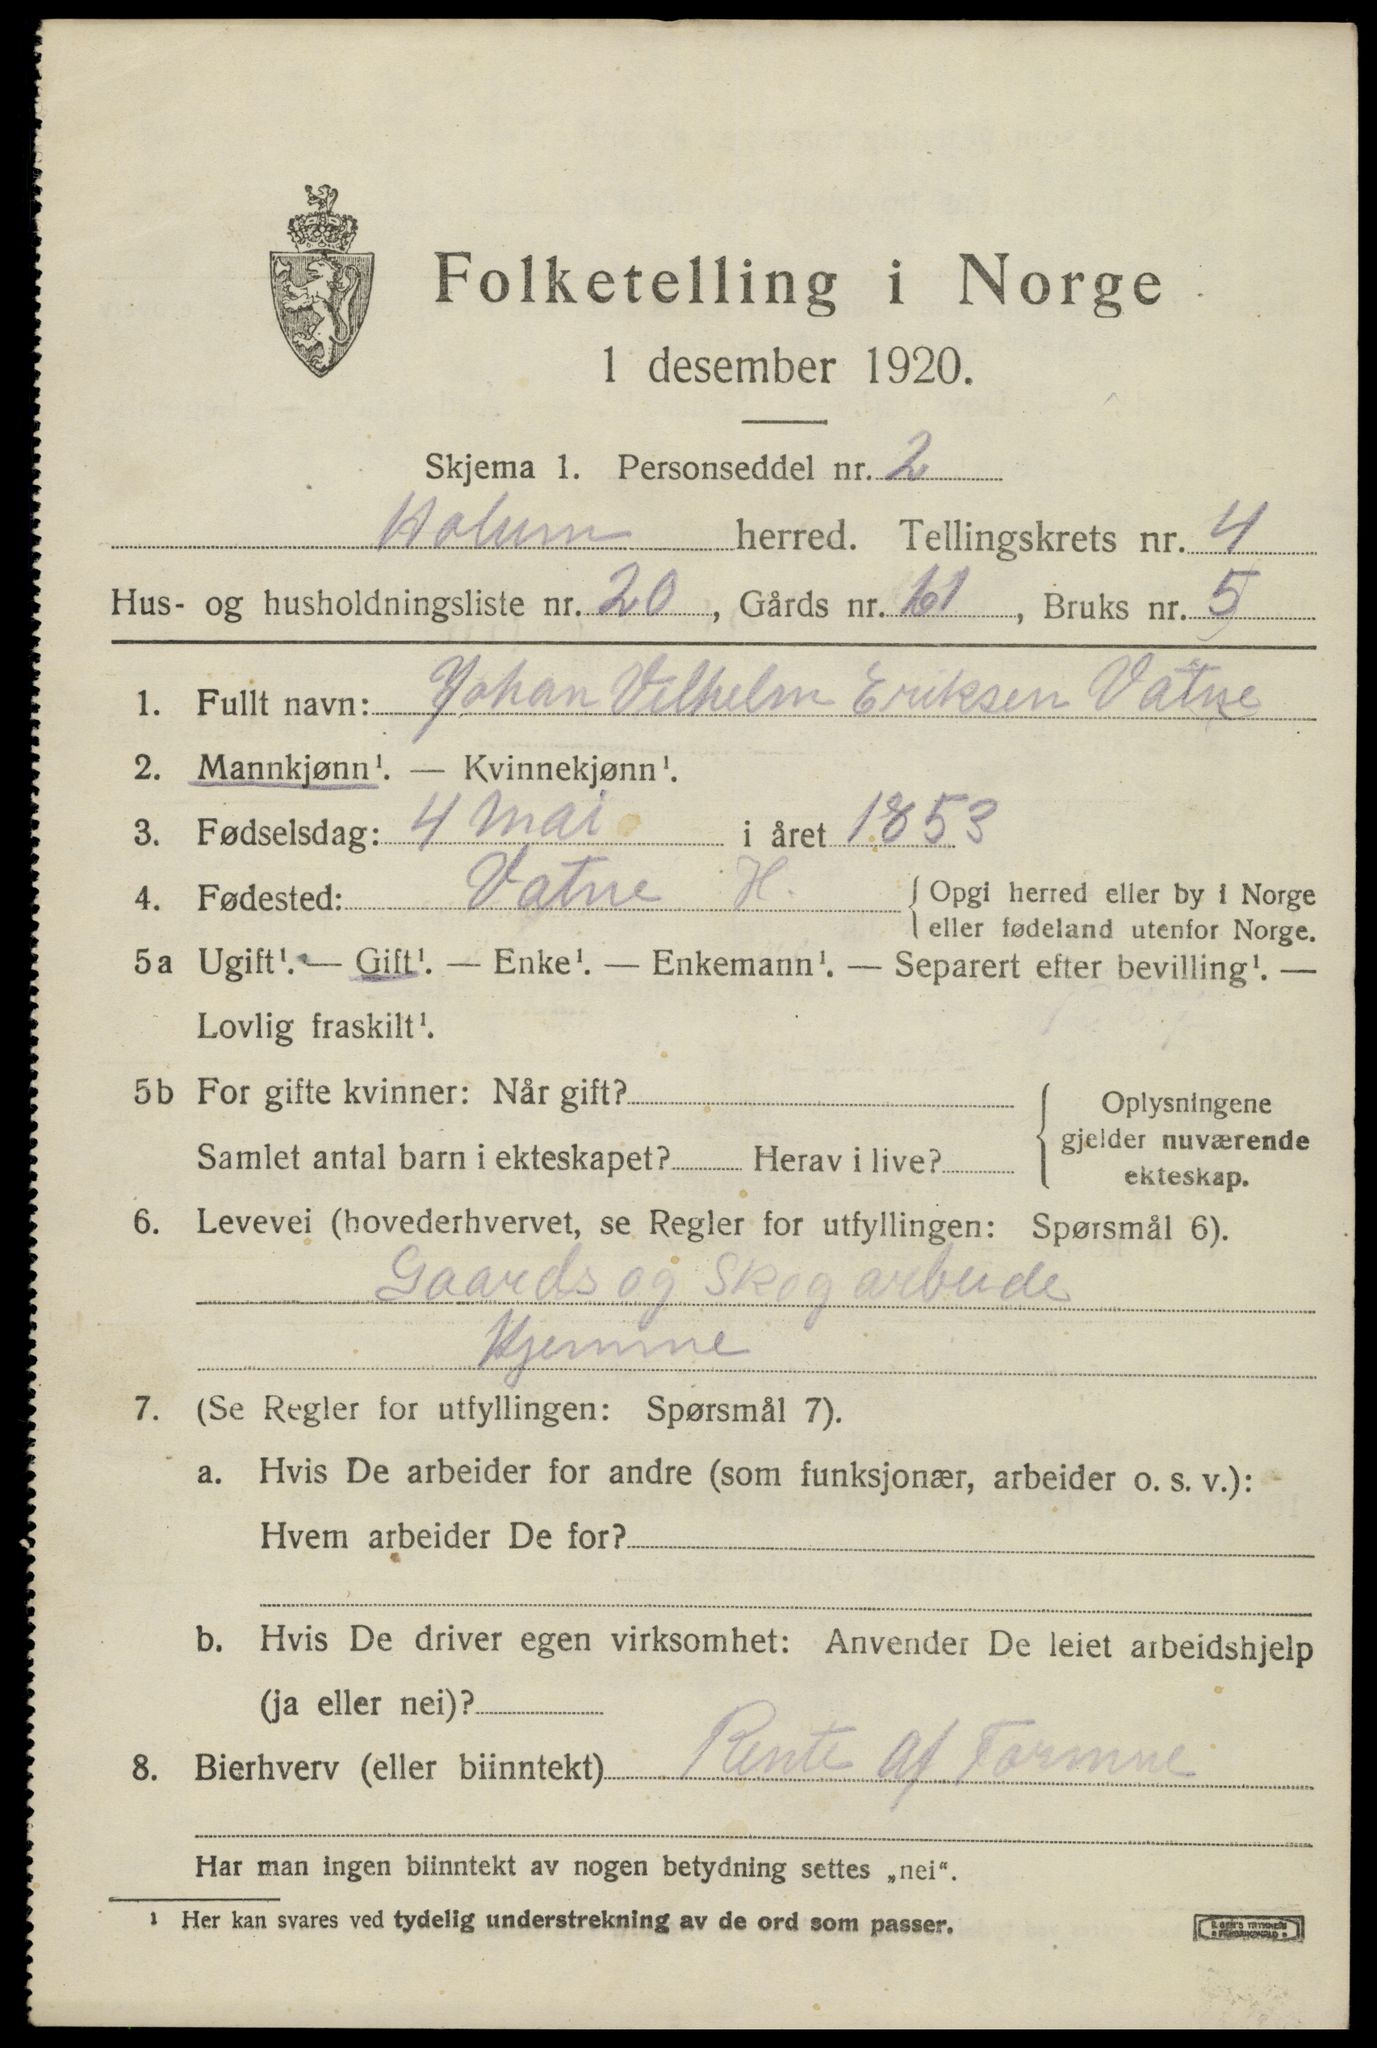 Folketelling i Norge
1 desember 1920.
Skjema 1. Personseddel nr. 2
Holum herred. Tellingskrets nr. 4
Hus- og husholdningsliste nr. 20, Gårds nr. 61, Bruks nr. 5
1. Fullt navn: Johan Vilhelm Eriksen Vatne
2. Mannkjønn¹. — Kvinnekjønn¹.
3. Fødselsdag: 4 Mai i året 1853
4. Fødested: Vatne H. { Opgi herred eller by i Norge
eller fødeland utenfor Norge.
5a Ugift¹. — Gift¹. — Enke¹. — Enkemann¹. — Separert efter bevilling¹. —
Lovlig fraskilt¹.
5b For gifte kvinner: Når gift? Oplysningene
gjelder nuværende
Samlet antal barn i ekteskapet? Herav i live?
ekteskap.
6. Levevei (hovederhvervet, se Regler for utfyllingen: Spørsmål 6).
Gaards og Skogarbeide
Hjemme
7. (Se Regler for utfyllingen: Spørsmål 7).
a. Hvis De arbeider for andre (som funksjonær, arbeider o. s. v.):
Hvem arbeider De for?
b. Hvis De driver egen virksomhet: Anvender De leiet arbeidshjelp
(ja eller nei)?
8. Bierhverv (eller biinntekt) Rente af Formue
Har man ingen biinntekt av nogen betydning settes „nei“.
¹ Her kan svares ved tydelig understrekning av de ord som passer.